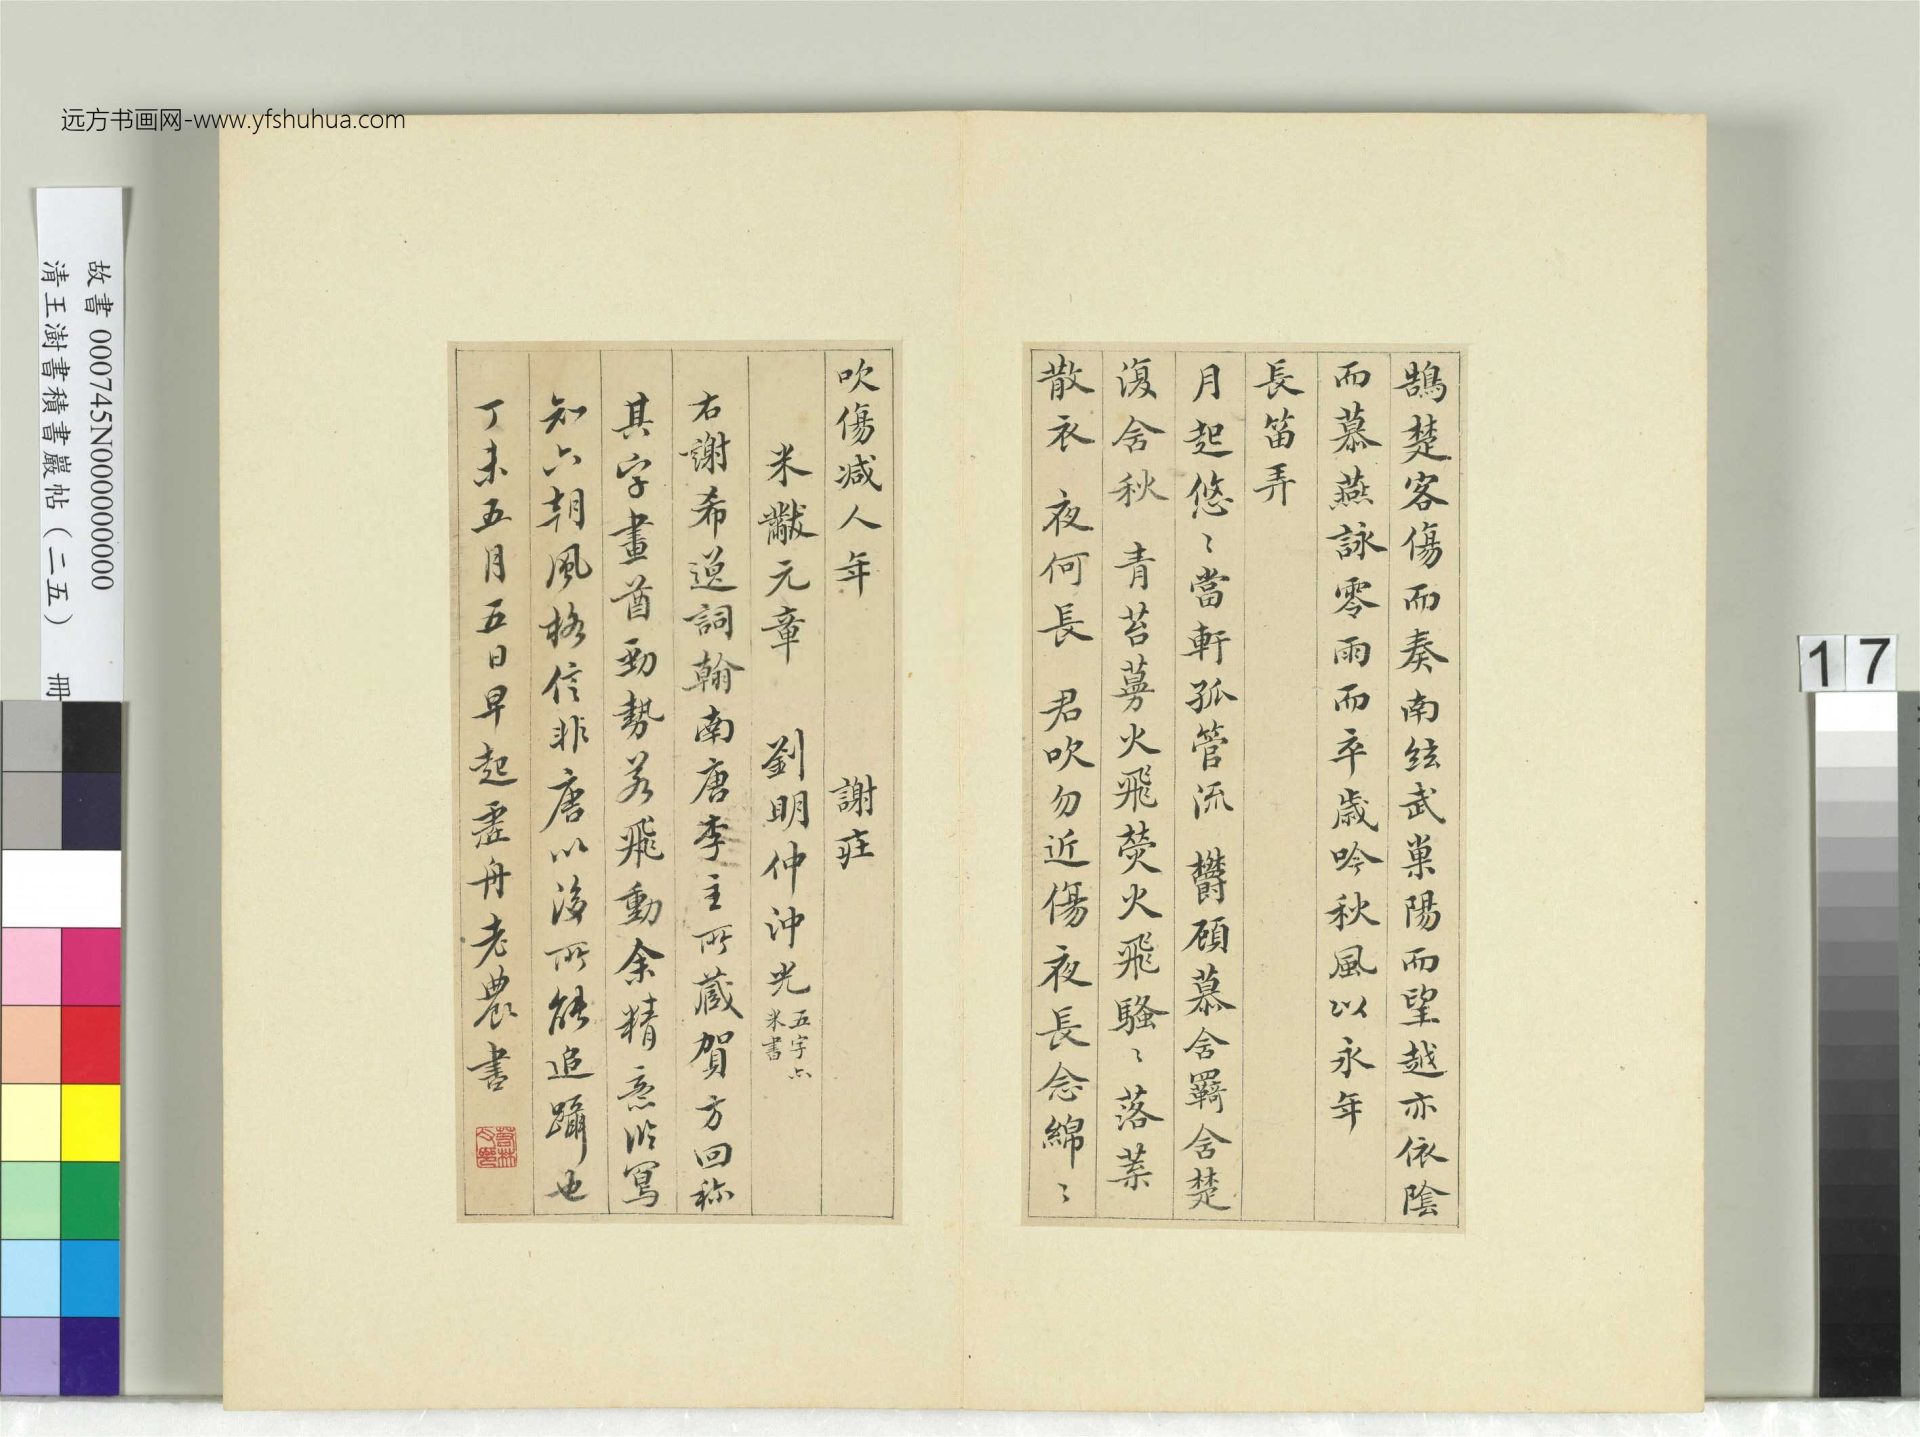 远方书画网-www.yfshuhua.com
故書 000745N000000000
清王澍書積書巖帖（二五） 冊
17
鵠楚客傷而奏南絃武巢陽而望越亦依陰
而慕燕詠零雨而卒歲吟秋風以永年
長笛弄
月起悠〻當軒孤管流 欝顧慕含羇含楚
復含秋 青苔蔓火飛熒火飛騷〻落葉
散衣 夜何長 君吹勿近傷夜長念綿〻
吹傷減人年 謝莊
米黻元章 劉明仲沖光
五字亦
米書
右謝希逸詞翰南唐李主所蔵賀方回称
其字畫酋勁勢若飛動余精意臨寫
知六朝風格信非唐以後所能追躡也
丁未五月五日早起虛舟老農書